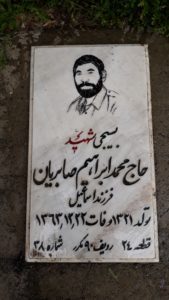 بسیجی شهید
حاج محمد ابراهیم صابریان
فرزند اسماعیل
تولد ۱۳۲۱ وفات ۱۳۶۳٫۱۲٫۲۲
قطعه ۲۴ ردیف ۹۰ مکرر شماره ۳۸